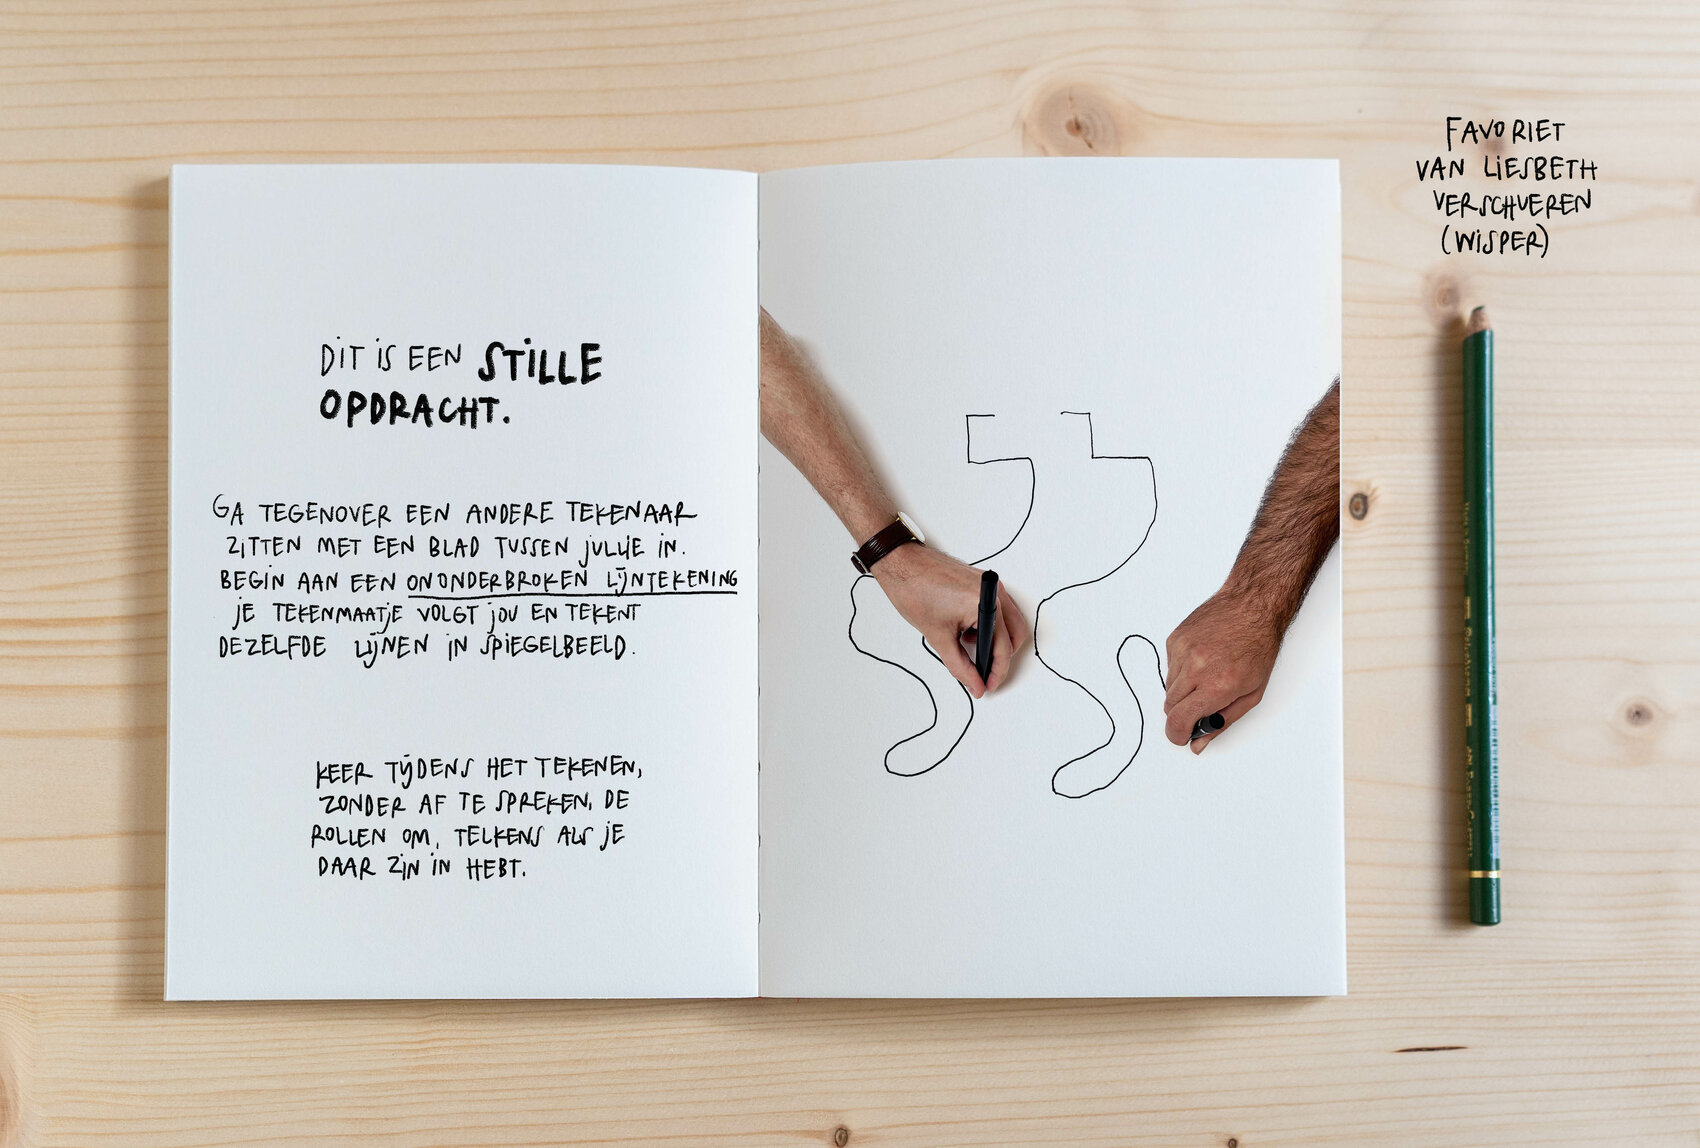 DIT IS EEN STILLE
OPDRACHT.
GA TEGENOVER EEN ANDERE TEKENAAR
ZITTEN MET EEN BLAD TUSSEN JULLIE IN.
BEGIN AAN EEN ONONDERBROKEN LIJNTEKENING
JE TEKENMAATJE VOLGT JOU EN TEKENT
DEZELFDE LIJNEN IN SPIEGELBEELD.
KEER TIJDENS HET TEKENEN,
ZONDER AF TE SPREKEN, DE
ROLLEN OM, TELKENS ALS JE
DAAR ZIN IN HEBT.
FAVORIET
VAN LIESBETH
VERSCHUEREN
(WISPER)